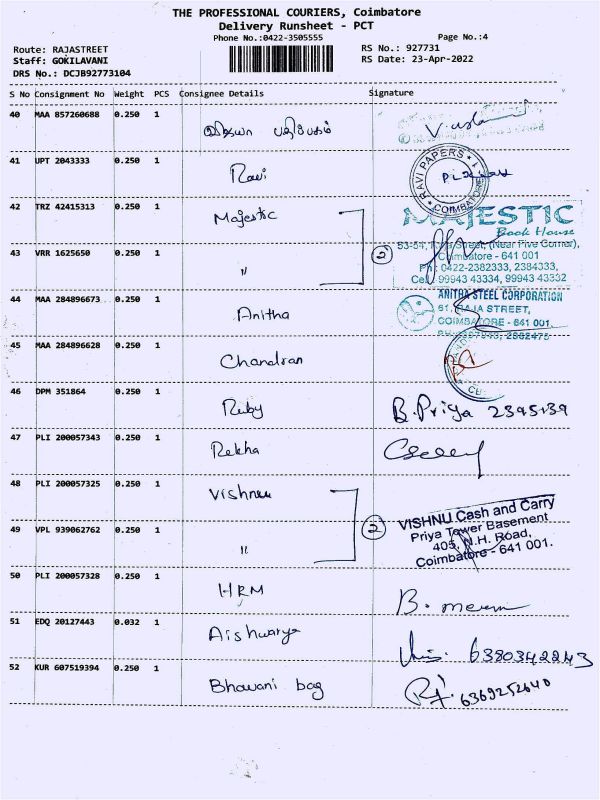 THE PROFESSIONAL COURIERS, Coimbatore
Delivery Runsheet - PCT
Phone No.:0422-3505555
Page No.:4
Route: RAJASTREET
RS No.: 927731
Staff: GOKILAVANI
RS Date: 23-Apr-2022
DRS No.: DCJB92773104
S No Consignment No Weight PCS Consignee Details Signature
40 MAA 857260688 0.250 1 விஜயா பதிப்பகம்
41 UPT 2043333 0.250 1 Ravi
RAVI PAPERS
COIMBATORE
42 TRZ 42415313 0.250 1 Majestic
MAJESTIC
Book House
43 VRR 1625650 0.250 1 " 2
Street, (Near Five Corner),
Coimbatore - 641 001
Ph: 0422-2382333, 2384333,
Cell: 99943 43334, 99943 43332
44 MAA 284896673 0.250 1 Anitha
ANITHA STEEL CORPORATION
61, RAJA STREET,
COIMBATORE - 641 001.
45 MAA 284896628 0.250 1 Chandran
46 DPM 351864 0.250 1 Ruby B. Priya
47 PLI 200057343 0.250 1 Rekha
48 PLI 200057325 0.250 1 Vishnu
VISHNU Cash and Carry
Priya Tower Basement
49 VPL 939062762 0.250 1 " 2
405, N.H. Road,
Coimbatore - 641 001.
50 PLI 200057328 0.250 1 HRM
51 EDQ 20127443 0.032 1 Aishwarya 6380342243
52 KUR 607519394 0.250 1 Bhawani bag 6369252640